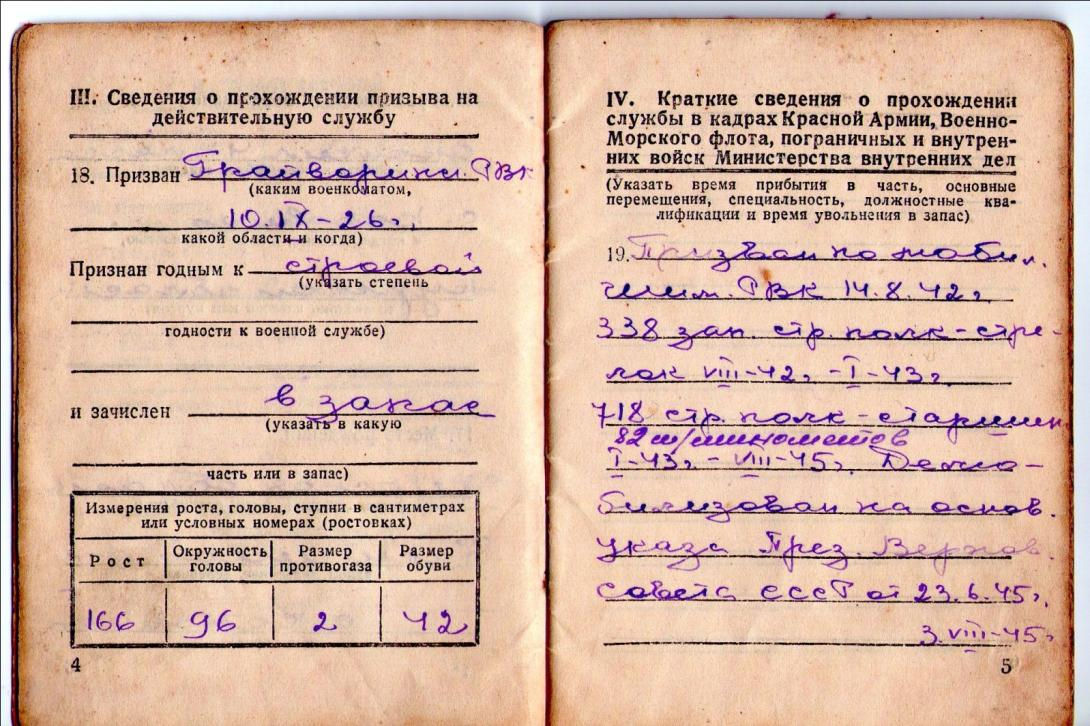 III. Сведения о прохождении призыва на
действительную службу
18. Призван Грайворонс. РВК
(каким военкоматом,
10.IX-26г.
какой области и когда)
Признан годным к строевой
(указать степень
годности к военной службе)
и зачислен в запас
(указать в какую
часть или в запас)
Измерения роста, головы, ступни в сантиметрах
или условных номерах (ростовках)
Рост Окружность головы Размер противогаза Размер обуви
166 96 2 42
4
IV. Краткие сведения о прохождении
службы в кадрах Красной Армии, Военно-
Морского флота, пограничных и внутрен-
них войск Министерства внутренних дел
(Указать время прибытия в часть, основные
перемещения, специальность, должностные ква-
лификации и время увольнения в запас)
19. Призван по мобил.
РВК 14.8.42г
338 зап. стр. полк - стре-
лок VIII-42г - I-43г
718 стр. полк - старшин
82 м/минометов
I-43г - VIII-45г. Демо-
билизован на основ.
указа През. Верхов.
совета СССР от 23.6.45г.
3.VIII-45г
5